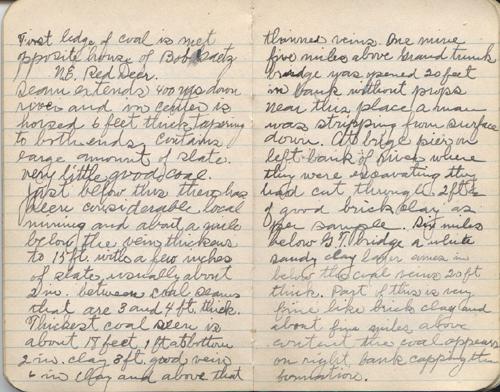 First ledge of coal is met
opposite house of Bob
N.E. Red Deer.
Seam extends 400 yds down
river and in center is
6 feet thick tapering
to both ends. Contains
large amount of slate.
very little good coal.
Just below this there has
been considerable local
mining and about a mile
below the vein thickens
to 15 ft. with a few inches
of slate, usually about
2 in. between coal seams
that are 3 and 4 ft. thick.
Thickest coal seen is
about 18 feet, 1 ft at bottom
2 ins. clay 3 ft. good vein
6 in clay and above that
thinned veins. One mine
five miles above Grand trunk
bridge was opened 20 feet
in bank without props
near this place a man
was stripping from surface
down. At bridge piers on
left bank of River where
they were excavating they
had cut through 2 ft
of good brick clay as
per sample. Six miles
below G.T. bridge a white
sandy clay layer comes in
below the coal veins 20 ft
thick. Part of this is very
fine like brick clay and
about five miles above
the coal appears
on right bank capping the
formation.